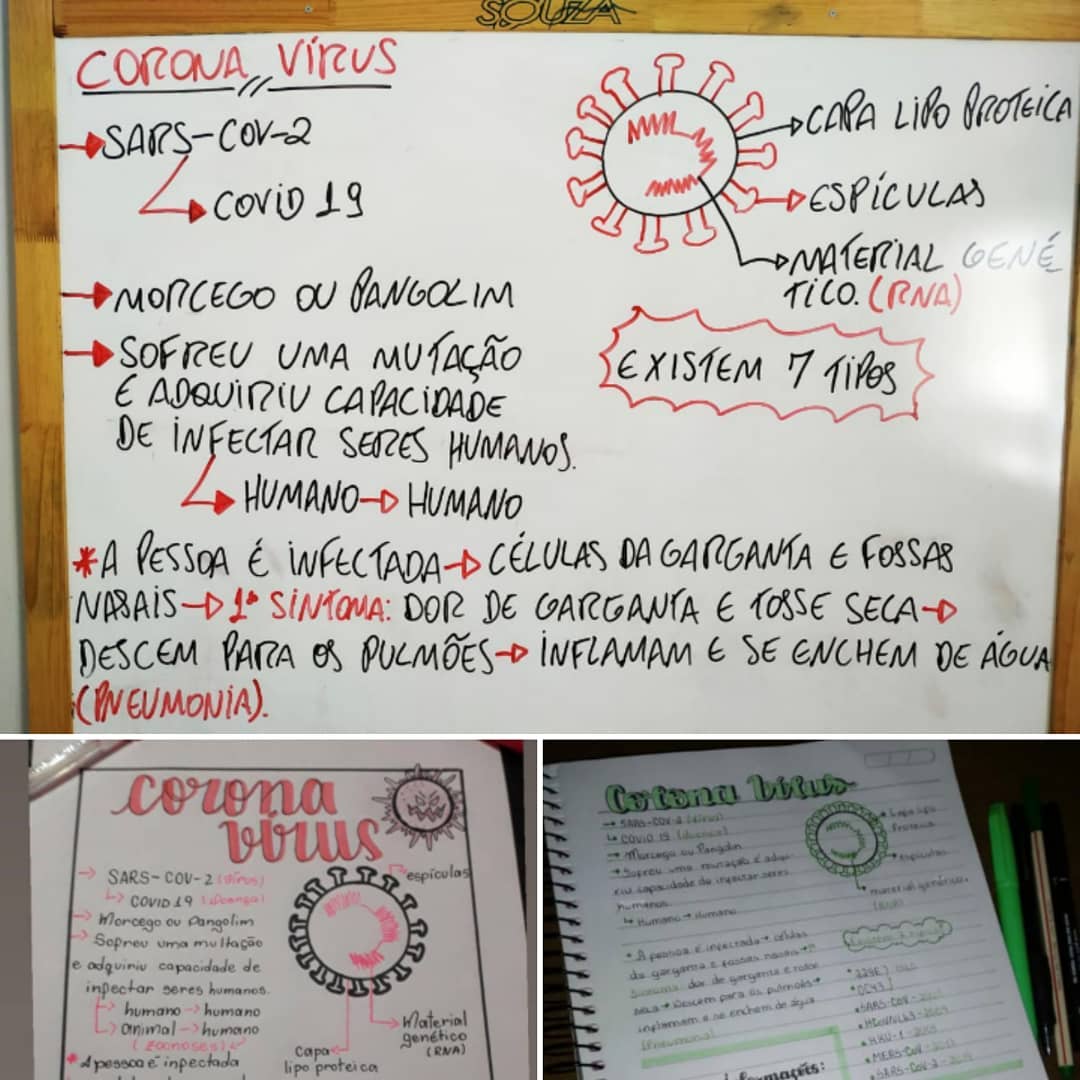 SOUZA
CORONA VÍRUS
SARS-COV-2
COVID 19
MORCEGO OU PANGOLIM
SOFREU UMA MUTAÇÃO
E ADQUIRIU CAPACIDADE
DE INFECTAR SERES HUMANOS.
HUMANO→HUMANO
CAPA LIPO PROTEICA
ESPÍCULAS
MATERIAL GENÉ
TICO. (RNA)
EXISTEM 7 TIPOS
*A PESSOA É INFECTADA→CÉLULAS DA GARGANTA E FOSSAS
NASAIS→1º SINTOMA: DOR DE GARGANTA E TOSSE SECA→
DESCEM PARA OS PULMÕES→INFLAMAM E SE ENCHEM DE ÁGUA
(PNEUMONIA).
corona
vírus
→ SARS-COV-2 (Vírus)
↳ COVID 19 (doença)
→ Morcego ou Pangolim
→ Sofreu uma multação
e adquiriu capacidade de
infectar seres humanos.
↳ humano → humano
↳ animal → humano
(zoonoses)
* A pessoa é infectada
espículas
Material
genético
(RNA)
Capa
lipo proteica
Corona Vírus
→ SARS-COV-2 (vírus)
↳ COVID 19 (doença)
→ Morcego ou Pangolin
→ Sofreu uma mutação e adqui-
riu capacidade de infectar seres
humanos.
↳ Humano → Humano
* A pessoa é infectada → células
da garganta e fossas nasais →
dor de garganta e tosse
seca → Descem para os pulmões →
inflamam e se enchem de água
(Pneumonia)
Capa lipo
Proteica
espículas
material genético.
(RNA)
• 229E
• OC43
• SARS-COV
• HKU-1
• MERS-COV
• SARS-COV-2